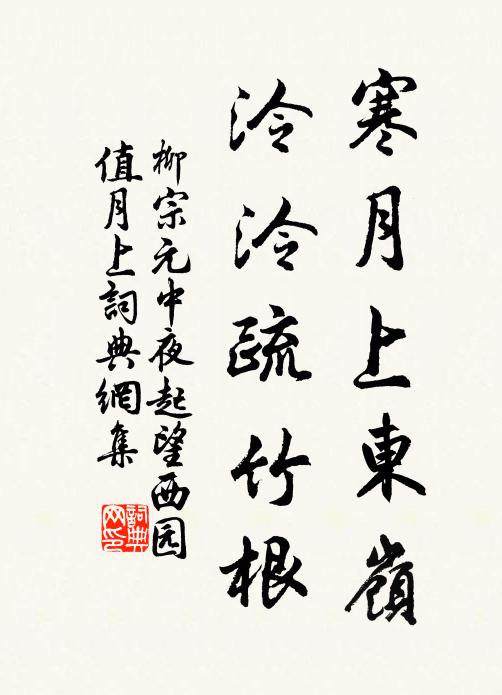 寒月上東嶺
泠泠疏竹根
柳宗元中夜起望西园
值月上詞典網集
詞典
网印